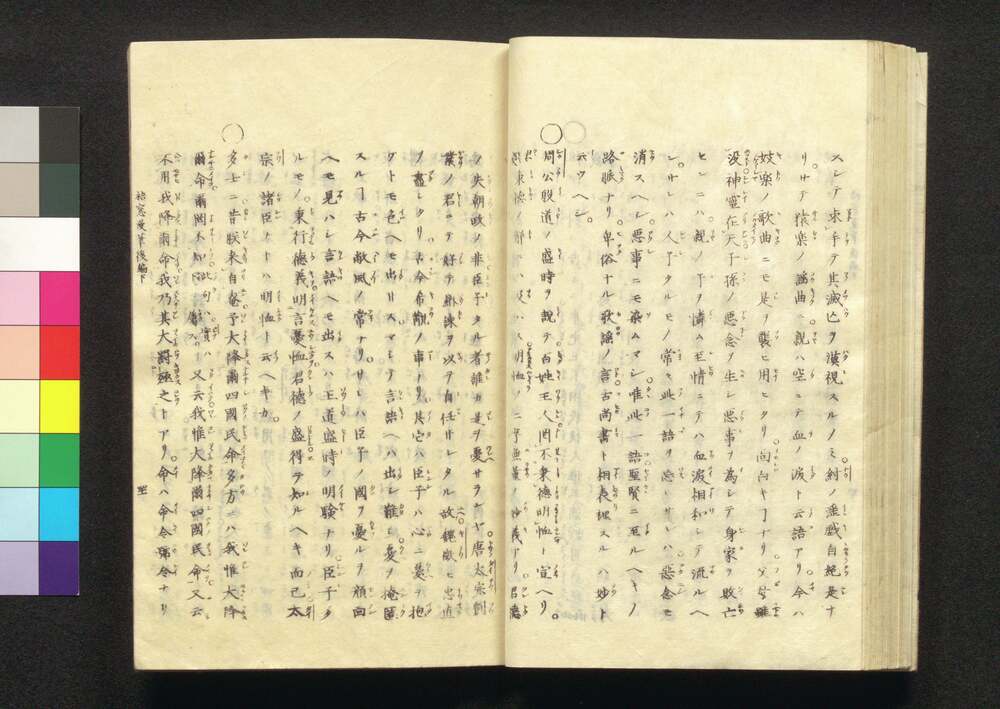 スシテ束手テ其滅亡ヲ漠視スルノミ紂ノ淫戯自絶是ナ
リサテ猿楽ノ謡曲ニ親ハ空ニテ血ノ涙ト云語アリ今ハ
妓楽ノ歌曲ニモ是ヲ襲ヒ用ヒタリ面向キ丁ナリ父母雖
没神霊在天子孫ノ悪念ヲ生シ悪事ヲ為シテ身家ヲ敗亡
ヒンニハ親ノ子ヲ憐ム至情ニテハ血涙相和シテ流ルヘ
シサレハ人ノ子タルモノ常ニ此一語ヲ忘レサレハ悪念モ
消スヘシ悪事ニモ染ムマシ唯此一語聖賢ニ至ルヘキノ
路脈ナリ卑俗ナル歌謡ノ言古尚書ト相表裡スルハ妙ト
云ウヘシ
○周公殷道ノ盛時ヲ説テ百姓王人罔不秉徳明恤ト宣ヘリ
ノ失朝政ノ非臣子タル者誰カ是ヲ憂サラヤ唐太宗創
業ノ君ニテ好テ弼諫ヲ以ヲ自任サレタル故魏徴ヒ忠直
ノ盡シタリ古今希覯ノ事トリ其它ハ臣子ハ心ニ憂ヲ抱
クトモ色ヘモ出サスマシテ言語ヘハ出シ難シ憂ヲ掩匿
スル丁古今敝風ノ常ナリサレハ臣子ノ國ヲ憂ルヲ顔面
ヘモ見ハシ言語ヘモ出スハ王道盛時ノ明験ナリ臣子タ
ルモノ秉行徳義明言憂恤君徳ノ盛得テ知ルヘキ而已太
宗ノ諸臣ナトハ明恤ト云ヘキカ
○多士ニ昔朕来自奄予大降爾四國民命多方ニハ我惟大降
爾命爾罔不知又云我惟大降爾四國民命又云
不用我降爾命我乃其大罰殛之トアリ命ハ命令命令ナリ
梧窓漫筆後編下